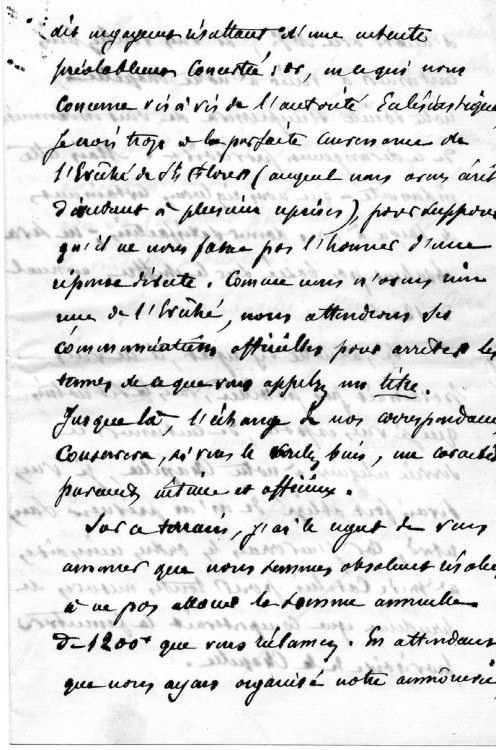 dits engagements résultant d'une entente
préalablement concertée; or, en ce qui nous
concerne vis à vis de l'autorité Ecclésiastique,
je crois trop à la parfaite courtoisie de
l'Evêché de St Flour (auquel nous avons écrit
d'ailleurs à plusieurs reprises), pour supposer
qu'il ne nous fasse pas l'honneur d'une
réponse directe. Comme nous n'avons rien
reçu de l'Evêché, nous attendrons ses
communications officielles pour arrêter les
termes de ce que vous appelez un titre.
Jusque là, l'échange de nos correspondances
conservera, si vous le voulez bien, un caractère
purement intime et officieux.
Sur ce terrain, j'ai le regret de vous
annoncer que nous sommes absolument résolus
à ne pas allouer la somme annuelle
de 1200 f que vous réclamez. En attendant
que nous ayons organisé notre aumônerie